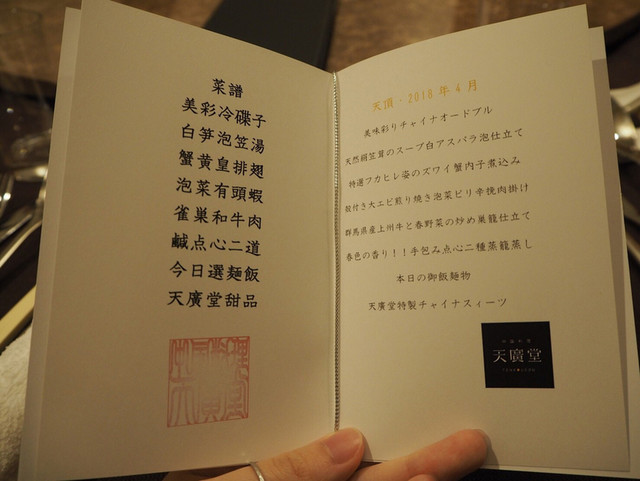 菜譜
美彩冷碟子
白笋泡笠湯
蟹黄皇排翅
泡菜有頭蝦
雀巣和牛肉
鹹点心二道
今日選麺飯
天廣堂甜品
天頂・2018年4月
美味彩りチャイナオードブル
天然絹笠茸のスープ白アスパラ泡仕立て
特選フカヒレ姿のズワイ蟹内子煮込み
殻付き大エビ煎り焼き泡菜ピリ辛挽肉掛け
群馬県産上州牛と春野菜の炒め巣籠仕立て
春色の香り！！手包み点心二種蒸籠蒸し
本日の御飯麺物
天廣堂特製チャイナスィーツ
天廣堂